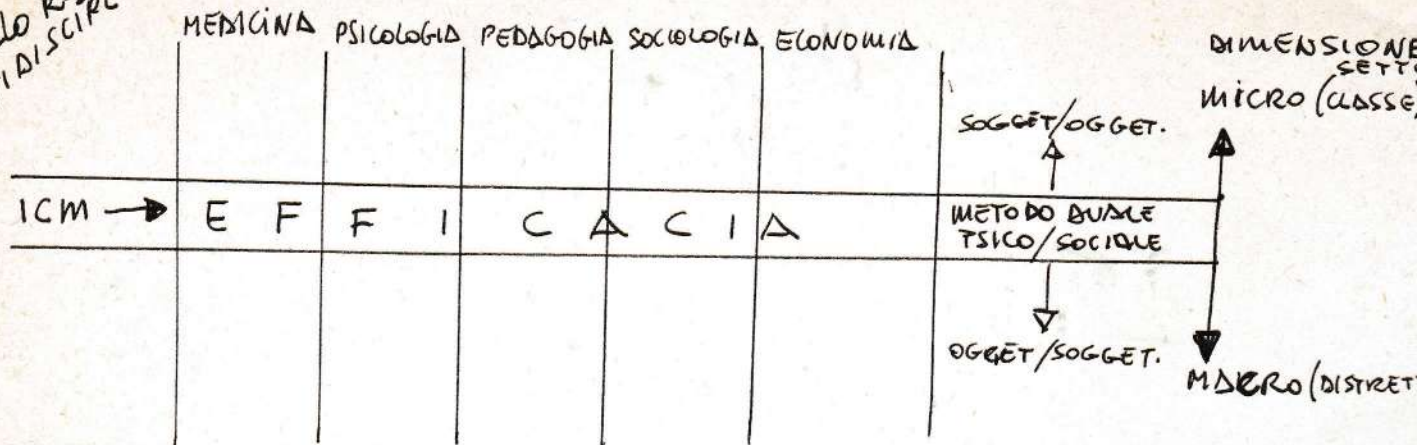 MEDICINA PSICOLOGIA PEDAGOGIA SOCIOLOGIA ECONOMIA
DIMENSIONE
SETT
MICRO (CLASSE)
SOGGET/OGGET.
ICM → EFFICACIA
METODO DUALE
PSICO/SOCIALE
OGGET/SOGGET.
MACRO (DISTRET